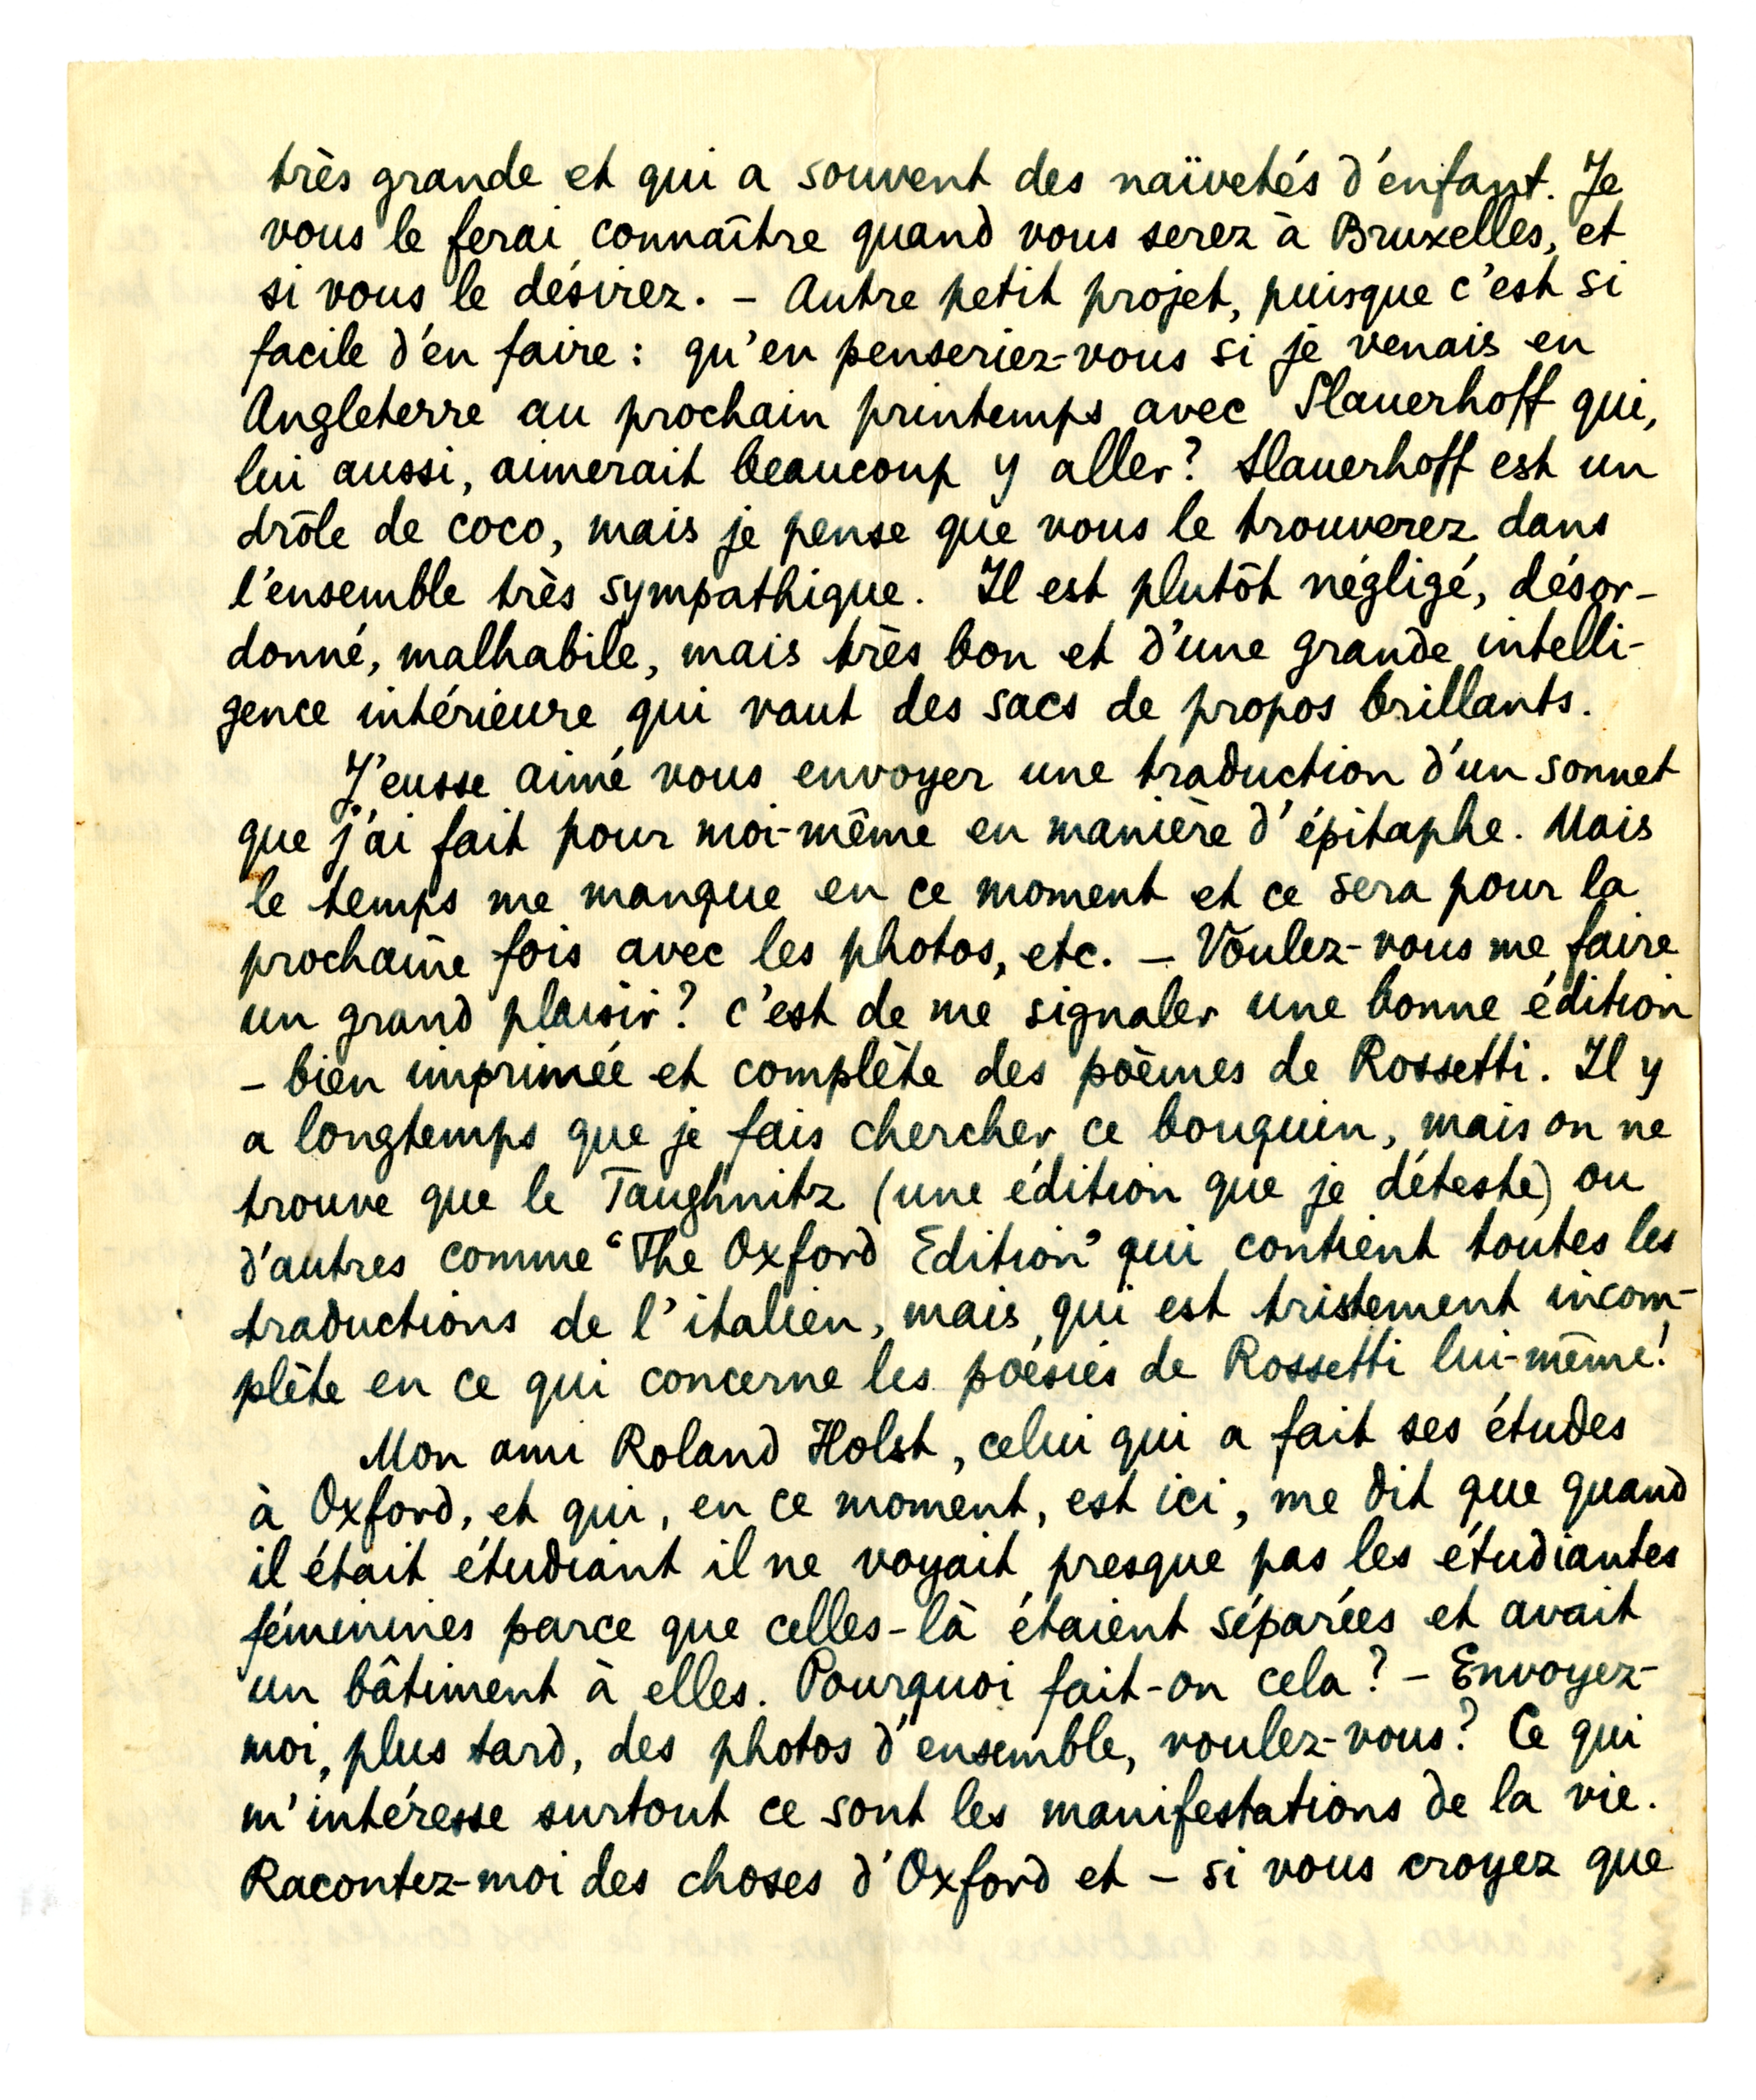 très grande et qui a souvent des naïvetés d'enfant. Je
vous le ferai connaître quand vous serez à Bruxelles, et
si vous le désirez. – Autre petit projet, puisque c'est si
facile d'en faire : qu'en penseriez-vous si je venais en
Angleterre au prochain printemps avec Slauerhoff qui,
lui aussi, aimerait beaucoup y aller? Slauerhoff est un
drôle de coco, mais je pense que vous le trouverez dans
l'ensemble très sympathique. Il est plutôt négligé, désor-
donné, malhabile, mais très bon et d'une grande intelli-
gence intérieure qui vaut des sacs de propos brillants.
J'eusse aimé vous envoyer une traduction d'un sonnet
que j'ai fait pour moi-même en manière d'épitaphe. Mais
le temps me manque en ce moment et ce sera pour la
prochaine fois avec les photos, etc. – Voulez-vous me faire
un grand plaisir? c'est de me signaler une bonne édition
– bien imprimée et complète des poèmes de Rossetti. Il y
a longtemps que je fais chercher ce bouquin, mais on ne
trouve que le Taughnitz (une édition que je déteste) ou
d'autres comme “The Oxford Edition” qui contient toutes les
traductions de l'italien, mais qui est tristement incom-
plète en ce qui concerne les poésies de Rossetti lui-même!
Mon ami Roland Holst, celui qui a fait ses études
à Oxford, et qui, en ce moment, est ici, me dit que quand
il était étudiant il ne voyait presque pas les étudiantes
féminines parce que celles-là étaient séparées et avait
un bâtiment à elles. Pourquoi fait-on cela? – Envoyez-
moi, plus tard, des photos d'ensemble, voulez-vous? Ce qui
m'intéresse surtout ce sont les manifestations de la vie.
Racontez-moi des choses d'Oxford et – si vous croyez que